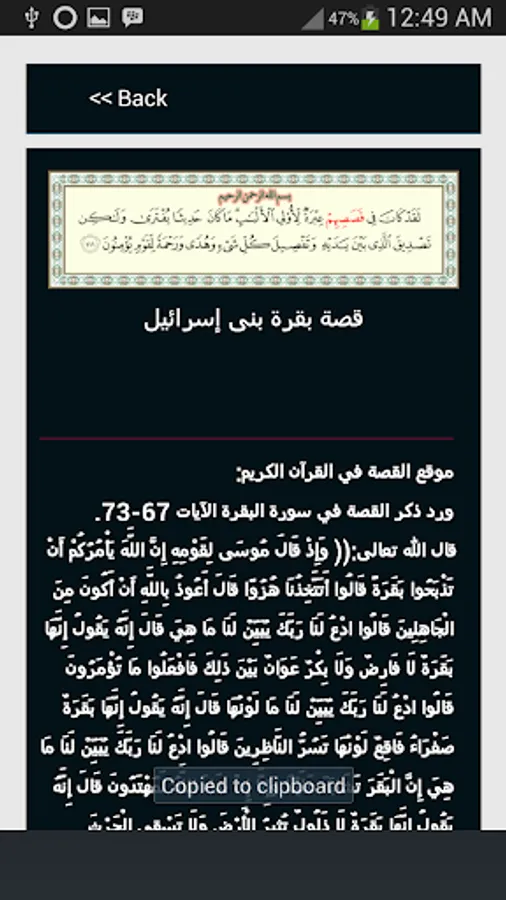 47% 12:49 AM
<< Back
بسم الله الرحمن الرحيم
لَقَدْ كَانَ فِي قَصَصِهِمْ عِبْرَةٌ لِّأُولِي الْأَلْبَابِ مَا كَانَ حَدِيثًا يُفْتَرَىٰ وَلَٰكِن
تَصْدِيقَ الَّذِي بَيْنَ يَدَيْهِ وَتَفْصِيلَ كُلِّ شَيْءٍ وَهُدًى وَرَحْمَةً لِّقَوْمٍ يُؤْمِنُونَ
قصة بقرة بنى إسرائيل
موقع القصة في القرآن الكريم:
ورد ذكر القصة في سورة البقرة الآيات 67-73.
قال الله تعالى:(( وَإِذْ قَالَ مُوسَى لِقَوْمِهِ إِنَّ اللَّهَ يَأْمُرُكُمْ أَنْ
تَذْبَحُوا بَقَرَةً قَالُوا أَتَتَّخِذُنَا هُزُوًا قَالَ أَعُوذُ بِاللَّهِ أَنْ أَكُونَ مِنَ
الْجَاهِلِينَ قَالُوا ادْعُ لَنَا رَبَّكَ يُبَيِّنْ لَنَا مَا هِيَ قَالَ إِنَّهُ يَقُولُ إِنَّهَا
بَقَرَةٌ لَا فَارِضٌ وَلَا بِكْرٌ عَوَانٌ بَيْنَ ذَلِكَ فَافْعَلُوا مَا تُؤْمَرُونَ
قَالُوا ادْعُ لَنَا رَبَّكَ يُبَيِّنْ لَنَا مَا لَوْنُهَا قَالَ إِنَّهُ يَقُولُ إِنَّهَا بَقَرَةٌ
صَفْرَاءُ فَاقِعٌ لَوْنُهَا تَسُرُّ النَّاظِرِينَ قَالُوا ادْعُ لَنَا رَبَّكَ يُبَيِّنْ لَنَا مَا
هِيَ إِنَّ الْبَقَرَ قَالَ إِنَّهُ
Copied to clipboard
يَقُولُ إِنَّهَا بَقَرَةٌ لَا ذَلُولٌ تُثِيرُ الْأَرْضَ وَلَا تَسْقِي الْحَرْثَ